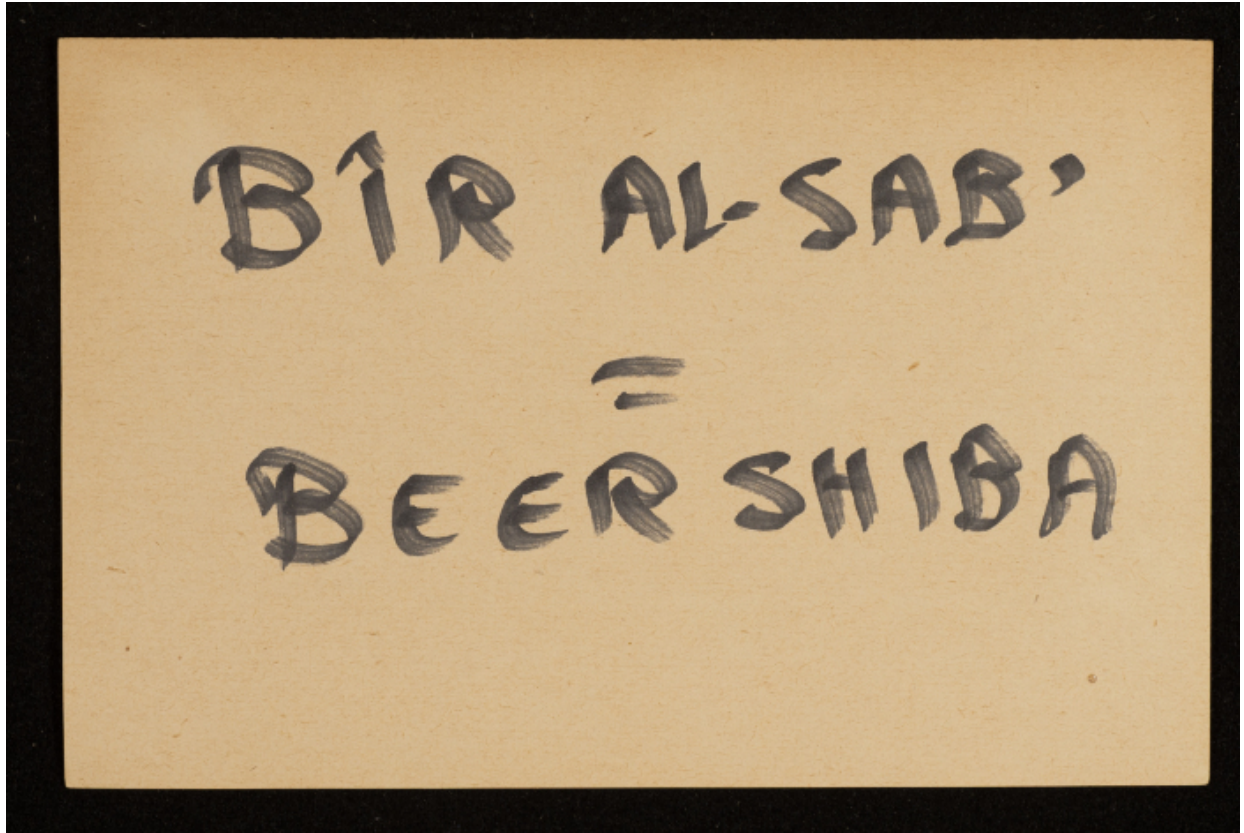 BÎR AL-SAB'
=
BEER SHIBA